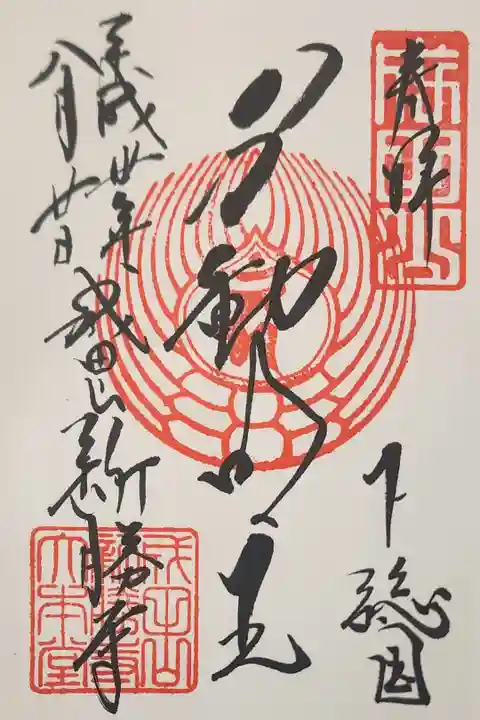 奉拝
下総国
不動明王
平成卅年成田山新勝寺
八月廿日
成田山
新勝寺
大本堂